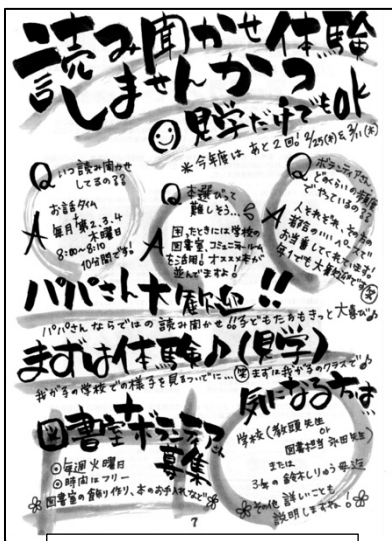 読み聞かせ体験
しませんかっ
見学だけでもok
※今年度はあと2回! 2/25(木)&3/11(木)
Q いつ読み聞かせ
してるの??
A お話タイム
毎月第2.3.4
木曜日
8:00〜8:10
10分間です!
Q 本選びって
難しそう…
A 困ったときには学校の
図書室、コミュニティルーム
を活用!オススメ本が
並んでますよ!
Q ボランティアさん
どれくらいの頻度
でやっているの??
A 人それぞれ、その方の
都合のいいペースで
お当番してくれています!
年1でも大歓迎です 笑
パパさん大歓迎!!
パパさんならではの読み聞かせ!!子どもたちもきっと大喜び♪
まずは体験♪(見学)
我が子の学校での様子を見るついでに… 笑 まずは我が子のクラスで♪
図書室ボランティアさん
募集
◎毎週火曜日
◎時間はフリー
図書室の飾り作り、本のお手入れなど
気になる方は
学校(教頭先生
or
図書担当 永田先生)
または
3年の鈴木しりゅう母
その他詳しいことも
説明しますね!
7